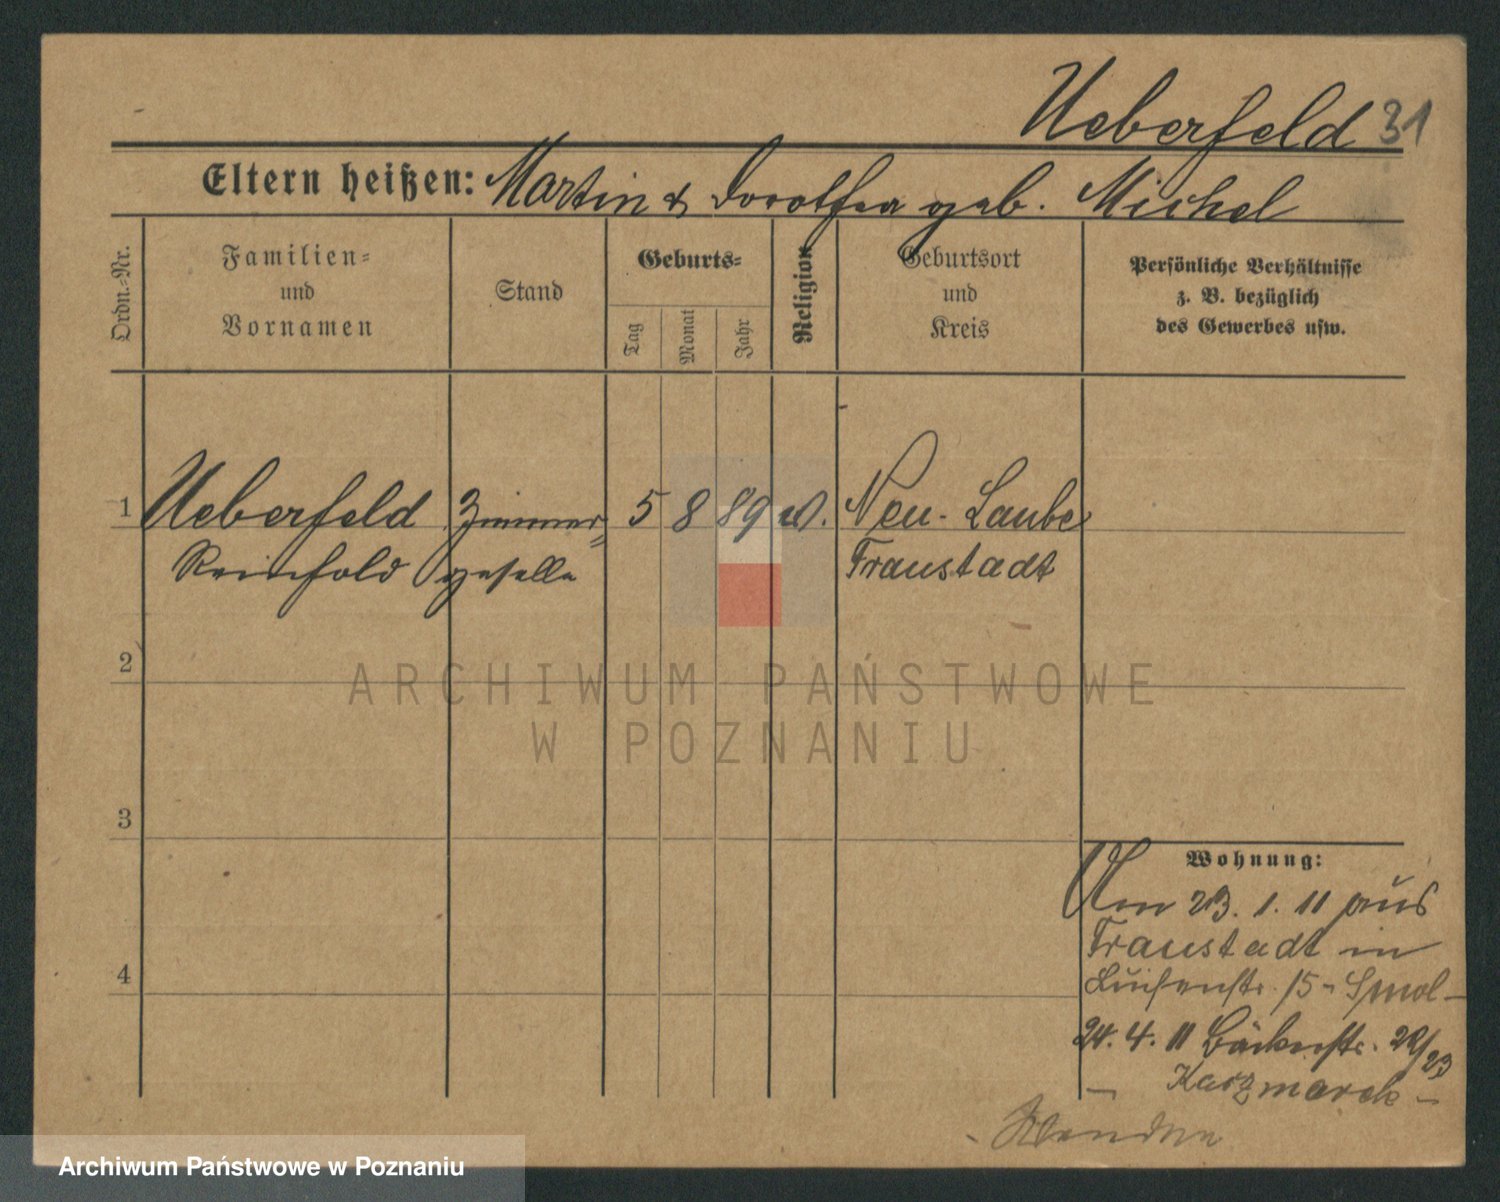 Ueberfeld 31
Eltern heißen: Martin & Dorothea geb. Michel
Ordn.-Nr.
Familien-
und
Vornamen
Stand
Geburts-
Tag
Monat
Jahr
Religion
Geburtsort
und
Kreis
Persönliche Verhältnisse
z. B. bezüglich
des Gewerbes usw.
1 Ueberfeld Zimmer- 5 8 89 Neu-Laube
Reinhold geselle Fraustadt
2
3
4
Wohnung:
Am 23. 1. 11 aus
Fraustadt in
Luisenstr. 15 - Smol-
24. 4. 11 Bäckerstr. 22/23
- Karzmarek -
ARCHIWUM PAŃSTWOWE
W POZNANIU
Archiwum Państwowe w Poznaniu